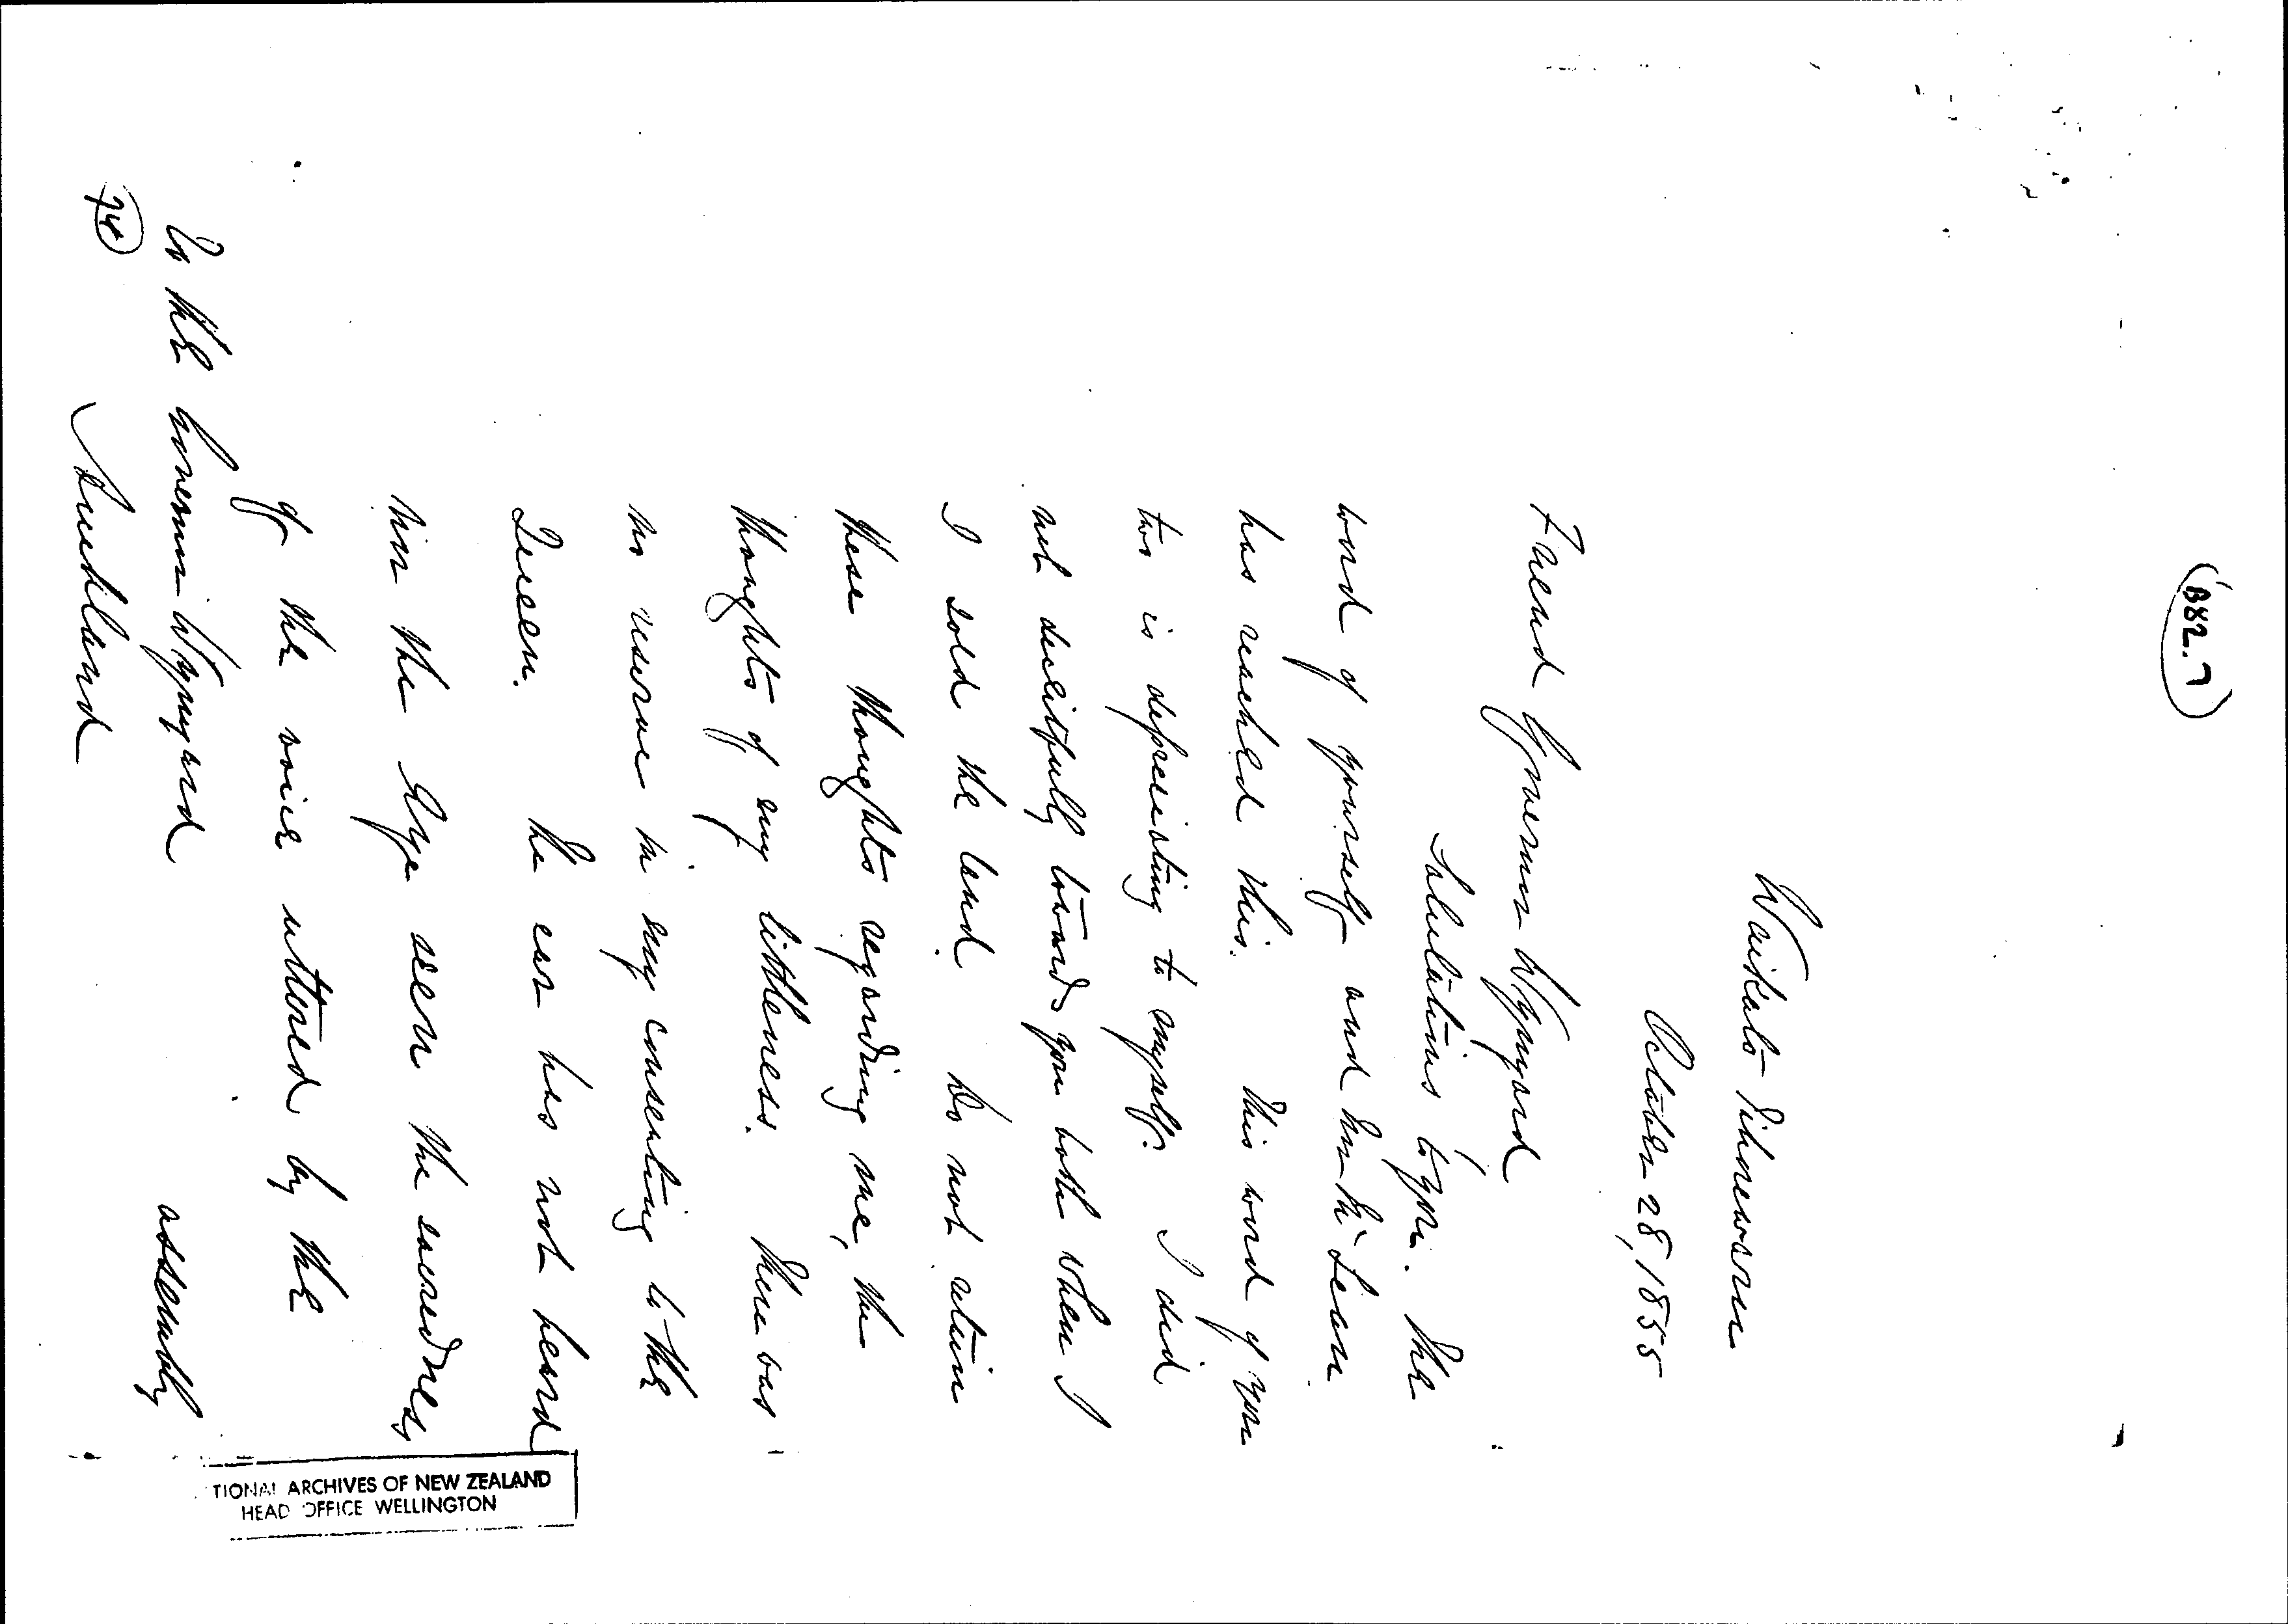 B82.7
Waikato Pihoewaru
October 28, 1855
Friend Governor Wynyard
Salutations to you. The
word of yourself and Mr McLean
has reached this. This word of you
two is depreciating to myself. I did
not deceitfully towards you both when I
I sold the land. Do not return
these thoughts regarding me, the
thoughts of my littleness. There was
no reserve in my consenting to the
Queen. The ear has not heard
nor the Eye seen the sacredness
of the voice uttered by the
assembly
To the Governor Wynyard
Auckland
74
TIONAL ARCHIVES OF NEW ZEALAND
HEAD OFFICE WELLINGTON